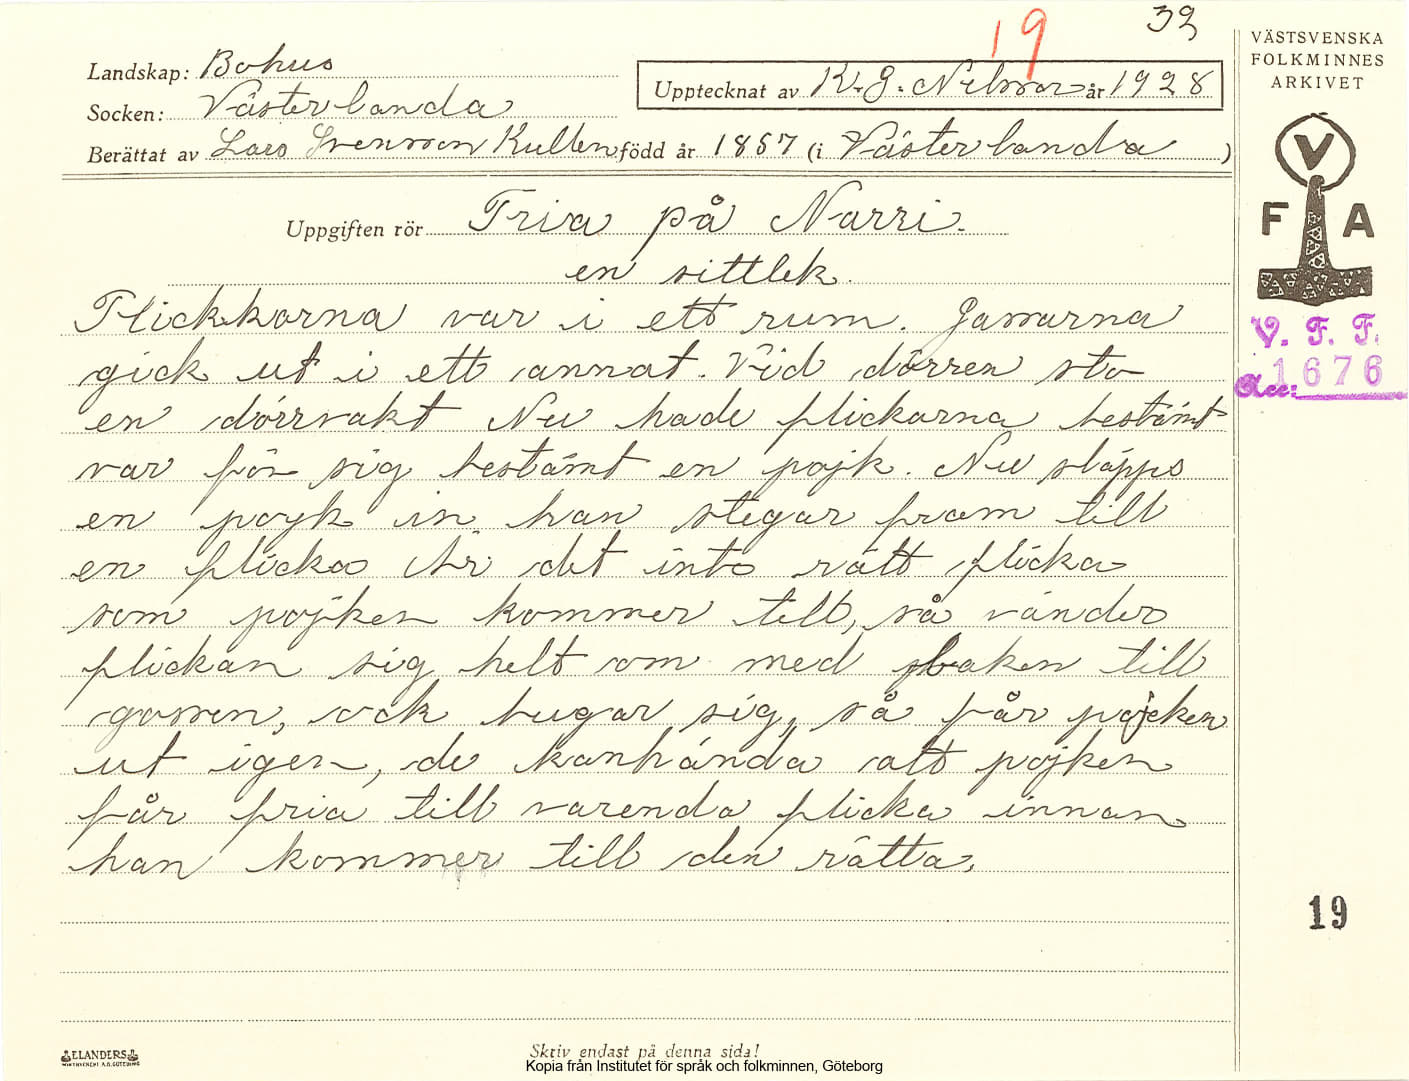 19
32
VÄSTSVENSKA
FOLKMINNES
ARKIVET
Landskap: Bohus
Upptecknat av K. G. Nilsson år 1928
Socken: Västerlanda
Berättat av Lars Svensson Kullen född år 1857 (i Västerlanda)
V
F A
Uppgiften rör Fria på Narri.
en sittlek.
Flickkorna var i ett rum. Gassarna
V. F. F.
gick ut i ett annat. Vid dörren sto
Acc: 1676
en dörrvakt Nu hade flickarna bestämt
var för sig bestämt en pojk. Nu släpps
en pojk in han stegar fram till
en flicka Är det inte rätt flicka
som pojken kommer till, så vänder
flickan sig helt om med baken till
gossen, ock bugar sig, så får pojcken
ut igen, de kanhända att pojken
får fria till varenda flicka innan
han kommer till den rätta.
19
ELANDERS
Skriv endast på denna sida!
Kopia från Institutet för språk och folkminnen, Göteborg